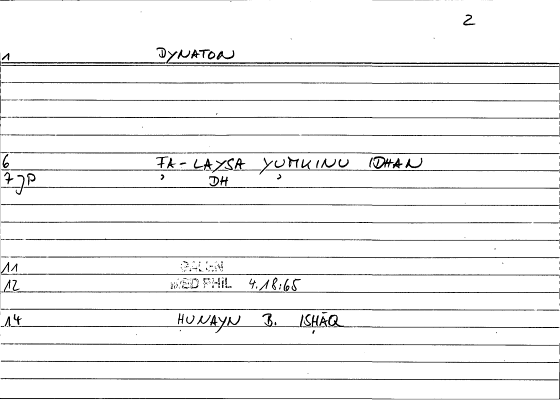 2
1 DYNATON
6 FA-LAYSA YUMKINU IDHAN
7 JP , DH ,
11 GALEN
12 MED PHIL 4.18:65
14 HUNAYN B. ISḤĀQ